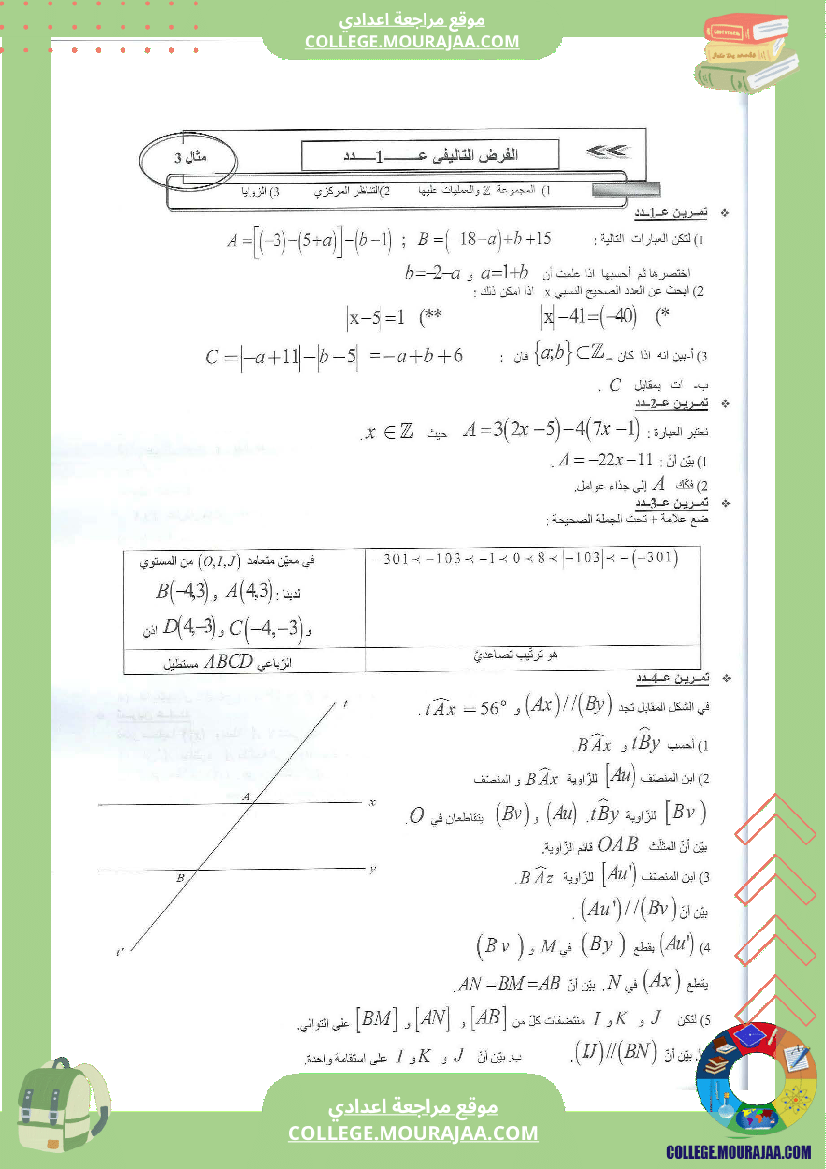 موقع مراجعة اعدادي
COLLEGE.MOURAJAA.COM
الفرض التاليفي عـــــ1ـــدد
مثال 3
1) المجموعة ℤ والعمليات عليها 2)التناظر المركزي 3) الزوايا
❖ تمـريـن عـ1ـدد
1) لتكن العبارات التالية : A=[(−3)−(5+a)]−(b−1) ; B=( 18−a)+b+15
اختصرها ثم أحسبها اذا علمت أن a=1+b و b=−2−a
2) ابحث عن العدد الصحيح النسبي x اذا امكن ذلك :
*) |x|−41=(−40) **) |x−5|=1
3) أ-بين انه اذا كان {a;b}⊂ℤ₋ فان : C=|−a+11|−|b−5| =−a+b+6
ب- ات بمقابل C .
❖ تمـريـن عـ2ـدد
نعتبر العبارة : A=3(2x−5)−4(7x−1) حيث x∈ℤ.
1) بيّن أنّ : A=−22x−11 .
2) فكّك A إلى جذاء عوامل.
❖ تمـريـن عـ3ـدد
ضع علامة + تحت الجملة الصحيحة :
301≺−103≺−1≺0≺8≺|−103|≺−(−301)
هو ترتّيب تصاعديّ
في معيّن متعامد (O,I,J) من المستوي
لدينا : A(4,3) و B(−4,3)
و C(−4,−3) و D(4,−3) اذن
الرّباعي ABCD مستطيل
❖ تمـريـن عـ4ـدد
في الشكل المقابل نجد (Ax)//(By) و tÂx=56° .
1) أحسب tB̂y و BÂx.
2) ابن المنصّف [Au) للزّاوية BÂx و المنصّف
[Bv) للزّاوية tB̂y. (Au) و (Bv) يتقاطعان في O.
بيّن أنّ المثلّث OAB قائم الزّاوية.
3) ابن المنصّف [Au') للزّاوية BÂz.
بيّن أنّ (Au')//(Bv) .
4) (Au') يقطع (By) في M و (Bv)
يقطع (Ax) في N. بيّن أنّ AN=BM=AB.
5) لتكن J و K و I منتصفات كلّ من [AB] و [AN] و [BM] على التوالي.
بيّن أنّ (IJ)//(BN). ب. بيّن أنّ J و K و I على استقامة واحدة.
t
A
x
B
y
t'
موقع مراجعة اعدادي
COLLEGE.MOURAJAA.COM
COLLEGE.MOURAJAA.COM